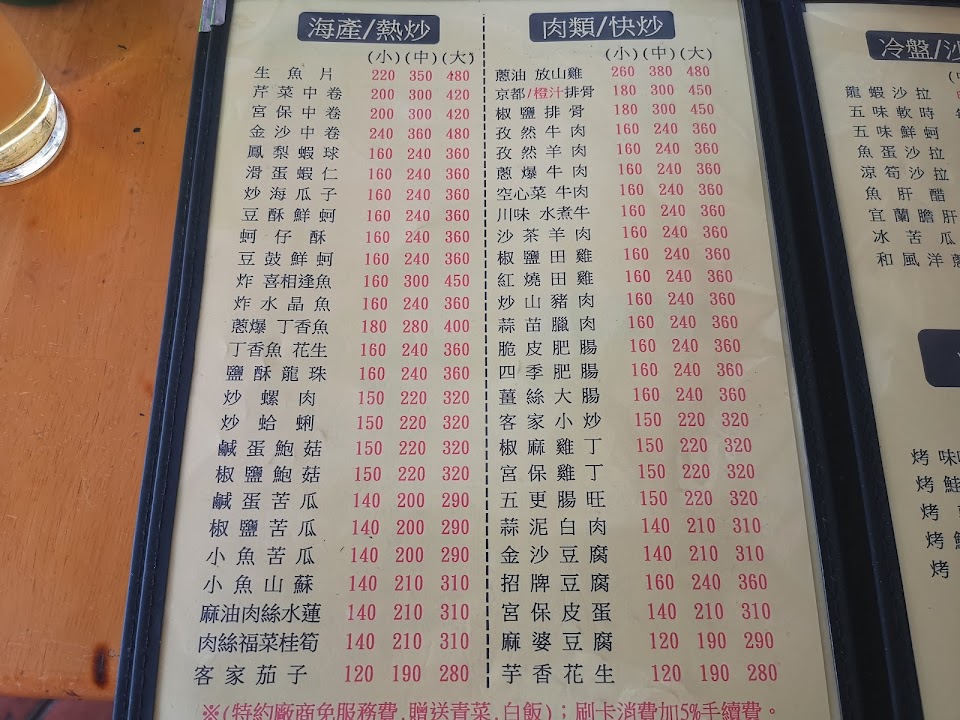 海產/熱炒
(小)(中)(大)
生魚片 220 350 480
芹菜中卷 200 300 420
宮保中卷 200 300 420
金沙中卷 240 360 480
鳳梨蝦球 160 240 360
滑蛋蝦仁 160 240 360
炒海瓜子 160 240 360
豆酥鮮蚵 160 240 360
蚵仔酥 160 240 360
豆鼓鮮蚵 160 240 360
炸 喜相逢魚 160 300 450
炸水晶魚 160 240 360
蔥爆 丁香魚 180 280 400
丁香魚 花生 160 240 360
鹽酥龍珠 160 240 360
炒螺肉 150 220 320
炒蛤蜊 150 220 320
鹹蛋鮑菇 150 220 320
椒鹽鮑菇 150 220 320
鹹蛋苦瓜 140 200 290
椒鹽苦瓜 140 200 290
小魚苦瓜 140 200 290
小魚山蘇 140 210 310
麻油肉絲水蓮 140 210 310
肉絲福菜桂筍 140 210 310
客家茄子 120 190 280
肉類/快炒
(小)(中)(大)
蔥油 放山雞 260 380 480
京都/橙汁排骨 180 300 450
椒鹽排骨 180 300 450
孜然牛肉 160 240 360
孜然羊肉 160 240 360
蔥爆牛肉 160 240 360
空心菜 牛肉 160 240 360
川味 水煮牛 160 240 360
沙茶羊肉 160 240 360
椒鹽田雞 160 240 360
紅燒田雞 160 240 360
炒山豬肉 160 240 360
蒜苗臘肉 160 240 360
脆皮肥腸 160 240 360
四季肥腸 160 240 360
薑絲大腸 160 240 360
客家小炒 150 220 320
椒麻雞丁 150 220 320
宮保雞丁 150 220 320
五更腸旺 150 220 320
蒜泥白肉 140 210 310
金沙豆腐 140 210 310
招牌豆腐 160 240 360
宮保皮蛋 140 210 310
麻婆豆腐 120 190 290
芋香花生 120 190 280
※(特約廠商免服務費.贈送青菜.白飯)；刷卡消費加5%手續費。
冷盤/沙
龍蝦沙拉
五味軟時
五味鮮蚵
魚蛋沙拉
涼筍沙拉
魚肝醋
宜蘭膽肝
冰苦瓜
和風洋蔥
烤 味
烤 鮭
烤
烤 鯖
烤